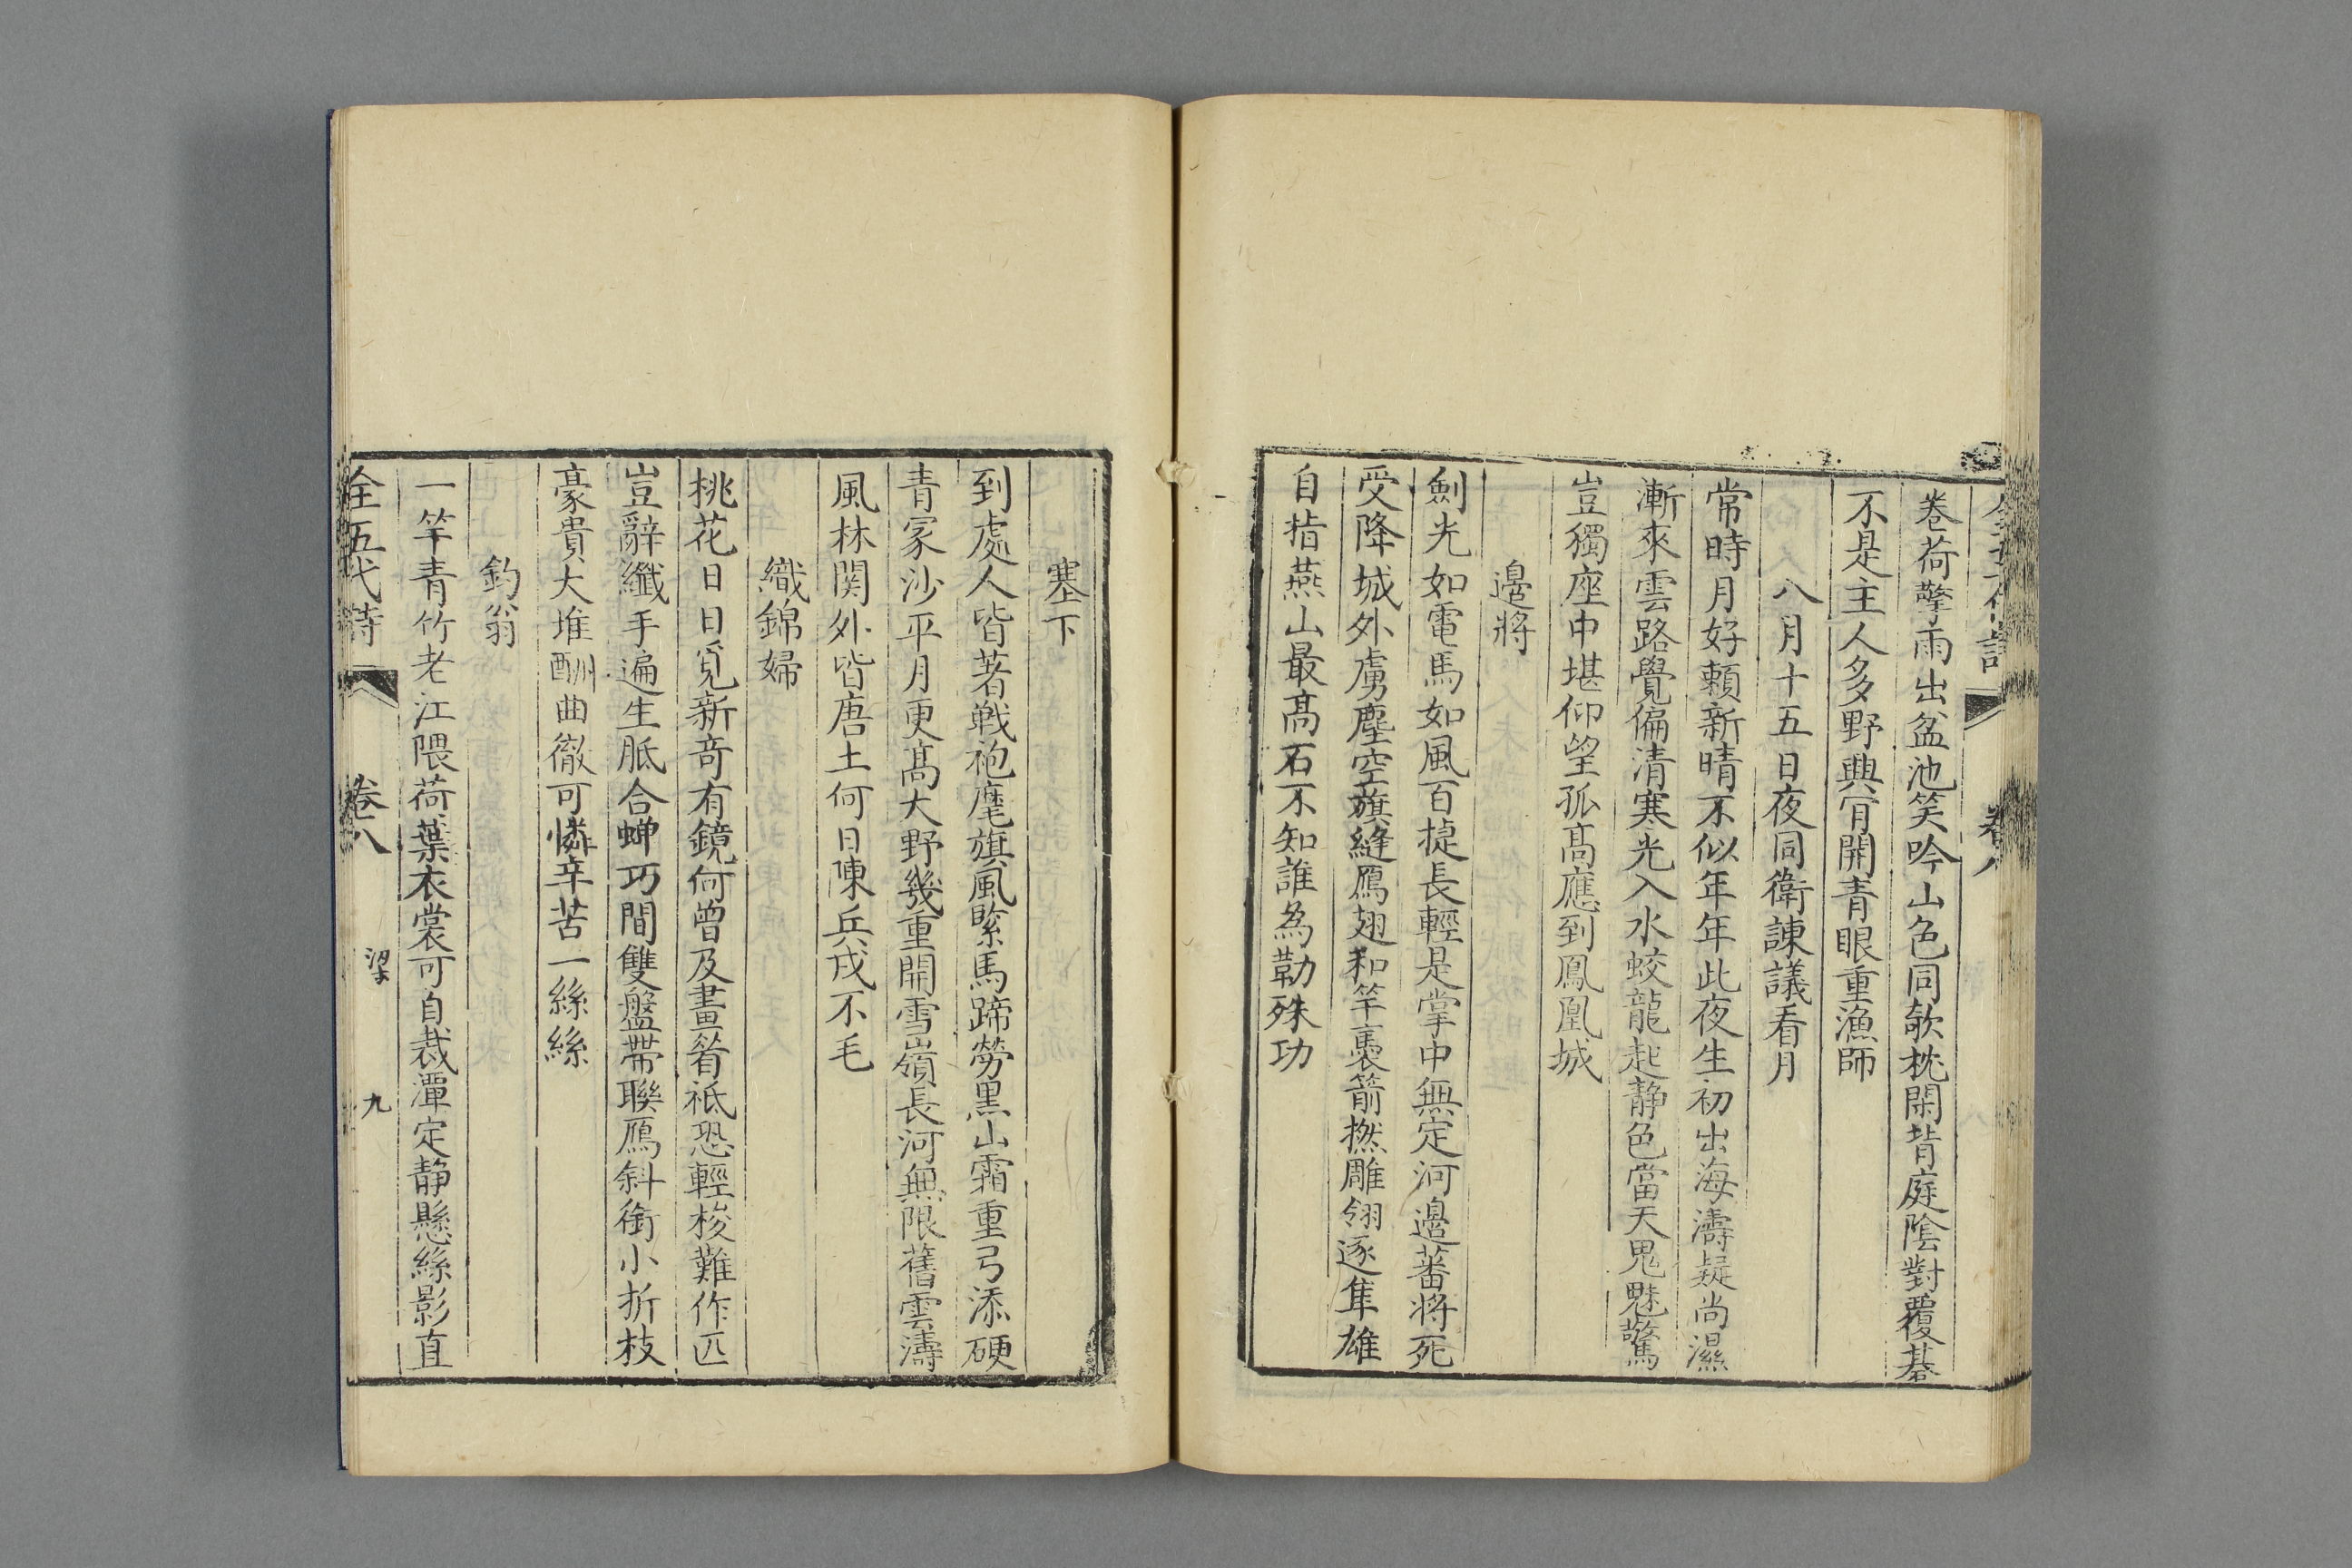 全五代詩 卷八
卷荷擎雨出盆池笑吟山色同欹枕閑背庭陰對覆棊
不是主人多野興肎開青眼重漁師
八月十五日夜同衛諫議看月
常時月好賴新晴不似年年此夜生初出海濤疑尚濕
漸來雲路覺偏清寒光入水蛟龍起静色當天鬼魅驚
豈獨座中堪仰望孤髙應到鳳凰城
邉將
劍光如電馬如風百㨗長輕是掌中無定河邉蕃將死
受降城外虜塵空旗縫鴈翅和竿裹箭撚雕翎逐隼雄
自指燕山最髙石不知誰為勒殊功
塞下
到處人皆著戦袍麾旗風緊馬蹄勞黒山霜重弓添硬
青冢沙平月更髙大野幾重開雪嶺長河無限舊雲濤
風林関外皆唐土何日陳兵戍不毛
織錦婦
桃花日日覓新竒有鏡何曾及畫眉祗恐輕梭難作匹
豈辭纖手遍生胝合蟬巧間雙盤帶聯鴈斜銜小折枝
豪貴大堆酬曲徹可憐辛苦一絲絲
釣翁
一竿青竹老江隈荷葉衣裳可自裁潭定静懸絲影直
全五代詩 卷八 梁 九